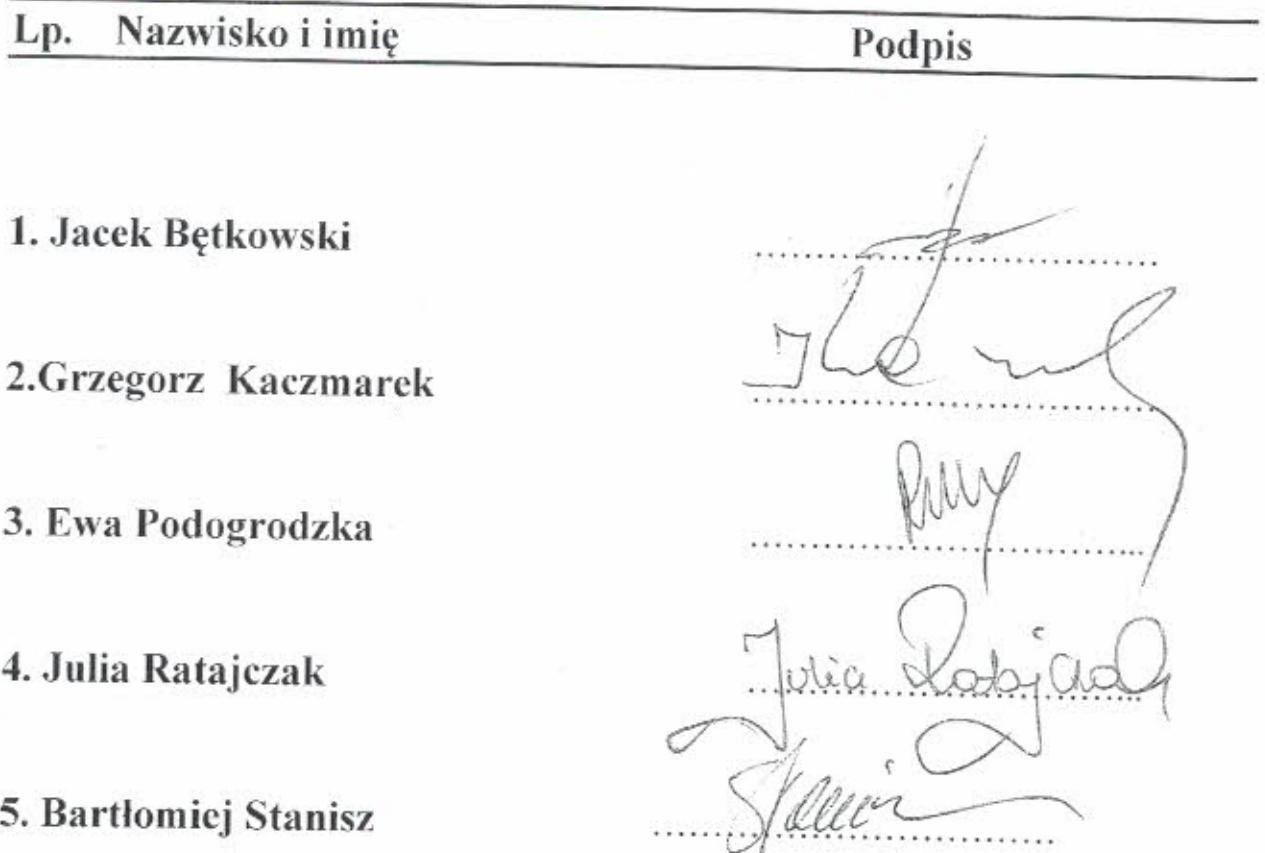 Lp. Nazwisko i imię Podpis
1. Jacek Bętkowski
2.Grzegorz Kaczmarek
3. Ewa Podogrodzka
4. Julia Ratajczak Julia Ratajczak
5. Bartłomiej Stanisz